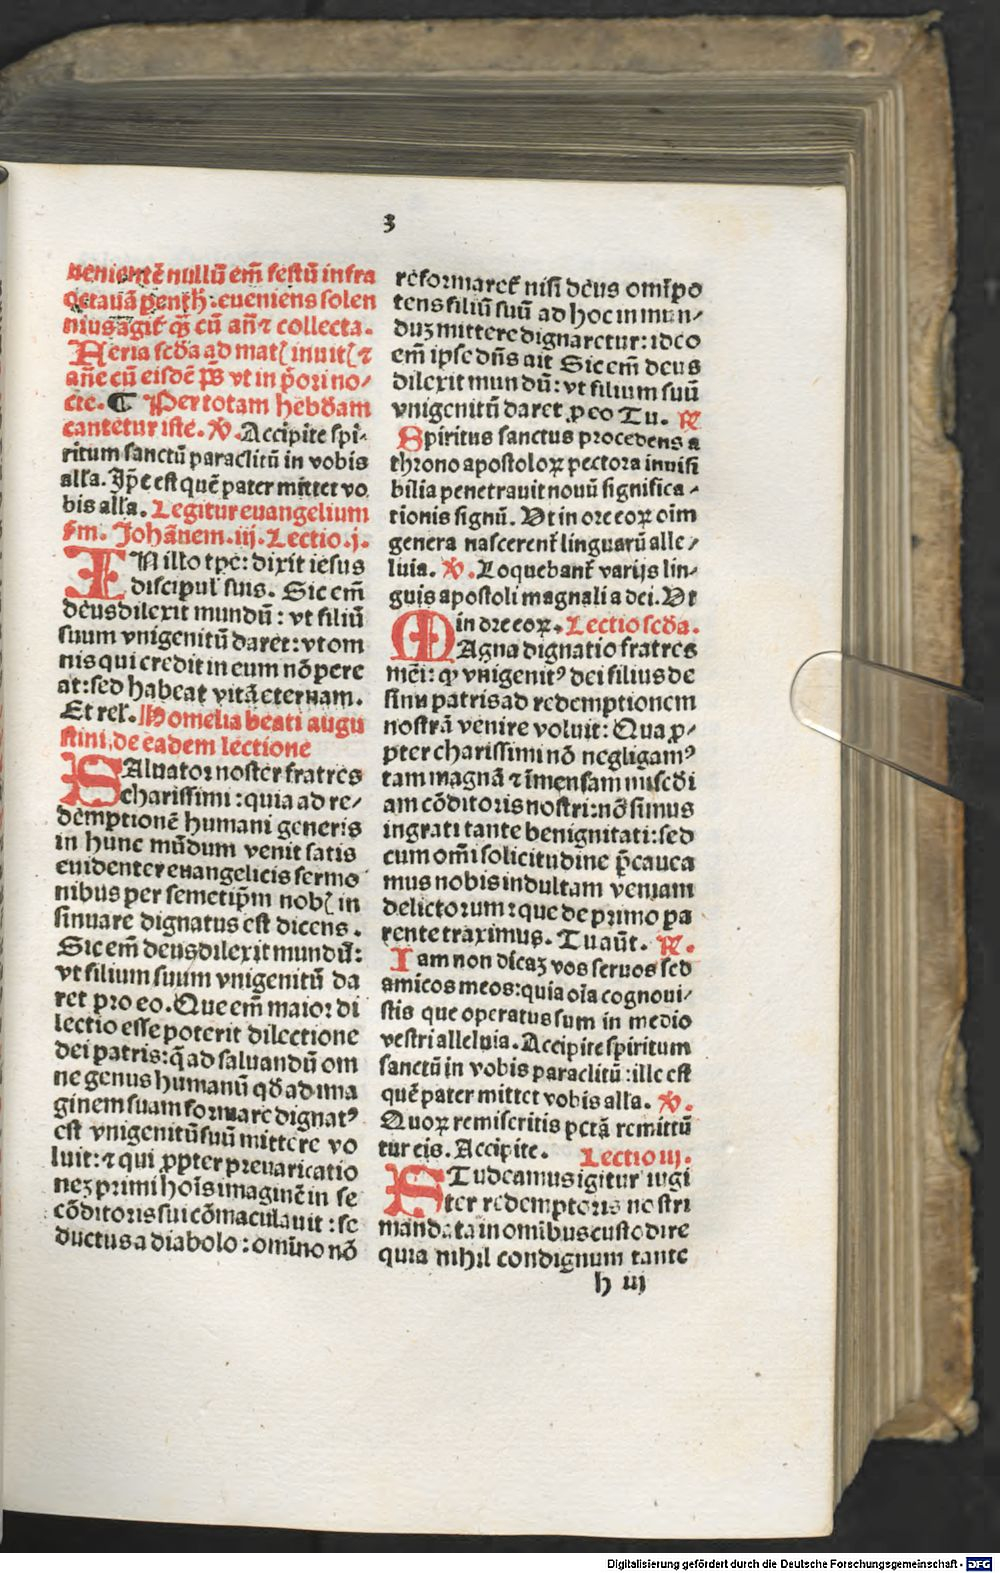 3
nenientē nullū em̄ festū infra
octauā penth̄ : eueniens solen
nius agit̄ qȝ cū an̄ ⁊ collecta.
Feria scd̄a ad matꝭ inuitꝭ ⁊
an̄e cū eisdē p̄s vt in p̄ori no⸗
cte. ¶ Per totam hebd̄am
cantetur iste. ℣. Accipite spi⸗
ritum sanctū paraclitū in vobis
alľa. Ip̄e est quē pater mittet vo
bis alľa. Legitur euangelium
sm̄. Johānem. iij. Lectio. j.
IN illo tꝑe : dixit iesus
discipul' suis. Sic em̄
deus dilexit mundū : vt filiū
suum vnigenitū daret : vt om
nis qui credit in eum nō pere
at : sed habeat vitā eternam.
Et rel'. Homelia beati augu
stini, de eadem lectione
SAluator noster fratres
charissimi : quia ad re⸗
demptionē humani generis
in hunc mūdum venit satis
euidenter euangelicis sermo
nibus per semetip̄m nobꝭ in
sinuare dignatus est dicens.
Sic em̄ deus dilexit mundū :
vt filium suum vnigenitū da
ret pro eo. Que em̄ maior di
lectio esse poterit dilectione
dei patris : q̄ ad saluandū om
ne genus humanū qd̄ ad ima
ginem suam formare dignatꝰ
est vnigenitū suū mittere vo
luit : ⁊ qui ꝓpter preuaricatio
nez primi hoīs imaginē in se
cōditoris sui cōmaculauit : se
ductus a diabolo : omīno nō
reformaret̄ nisi deus omīpo
tens filiū suū ad hoc in mun⸗
duȝ mittere dignaretur : ideo
em̄ ipse dn̄s ait Sic em̄ deus
dilexit mundū : vt filium suū
vnigenitū daret ꝓ eo Tu. ℟
Spiritus sanctus procedens a
throno apostoloꝝ pectora inuisi
bilia penetrauit nouū significa⸗
tionis signū. Vt in ore eoꝝ oīm
genera nascerent̄ linguarū alle⸗
luia. ℣. Loquebant̄ varijs lin⸗
guis apostoli magnalia dei. Vt
in ore eoꝝ. Lectio scd̄a.
MAgna dignatio fratres
mei : ꝙ vnigenitꝰ dei filius de
sinu patris ad redemptionem
nostrā venire voluit : Qua ꝓ⸗
pter charissimi nō negligamꝰ
tam magnā ⁊ īmensam miscd̄i
am cōditoris nostri : nō simus
ingrati tante benignitati : sed
cum om̄i solicitudine p̄cauea
mus nobis indultam veniam
delictorum : que de primo pa
rente traximus. Tu aūt. ℟.
Iam non dicaȝ vos seruos sed
amicos meos : quia oīa cognoui⸗
stis que operatus sum in medio
vestri alleluia. Accipite spiritum
sanctū in vobis paraclitū : ille est
quē pater mittet vobis alľa. ℣.
Quoꝝ remiseritis pctā remittū
tur eis. Accipite. Lectio iij.
STudeamus igitur iugi
ter redemptoris nostri
mandata in omībus custodire
quia nihil condignum tante
h iij
Digitalisierung gefördert durch die Deutsche Forschungsgemeinschaft - DFG